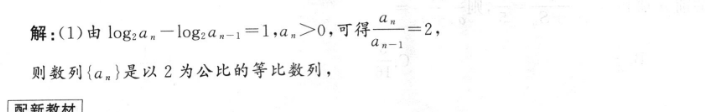 解:(1)由 log₂aₙ−log₂aₙ₋₁=1,aₙ>0,可得aₙ/aₙ₋₁=2,
则数列{aₙ}是以2为公比的等比数列,
配新教材